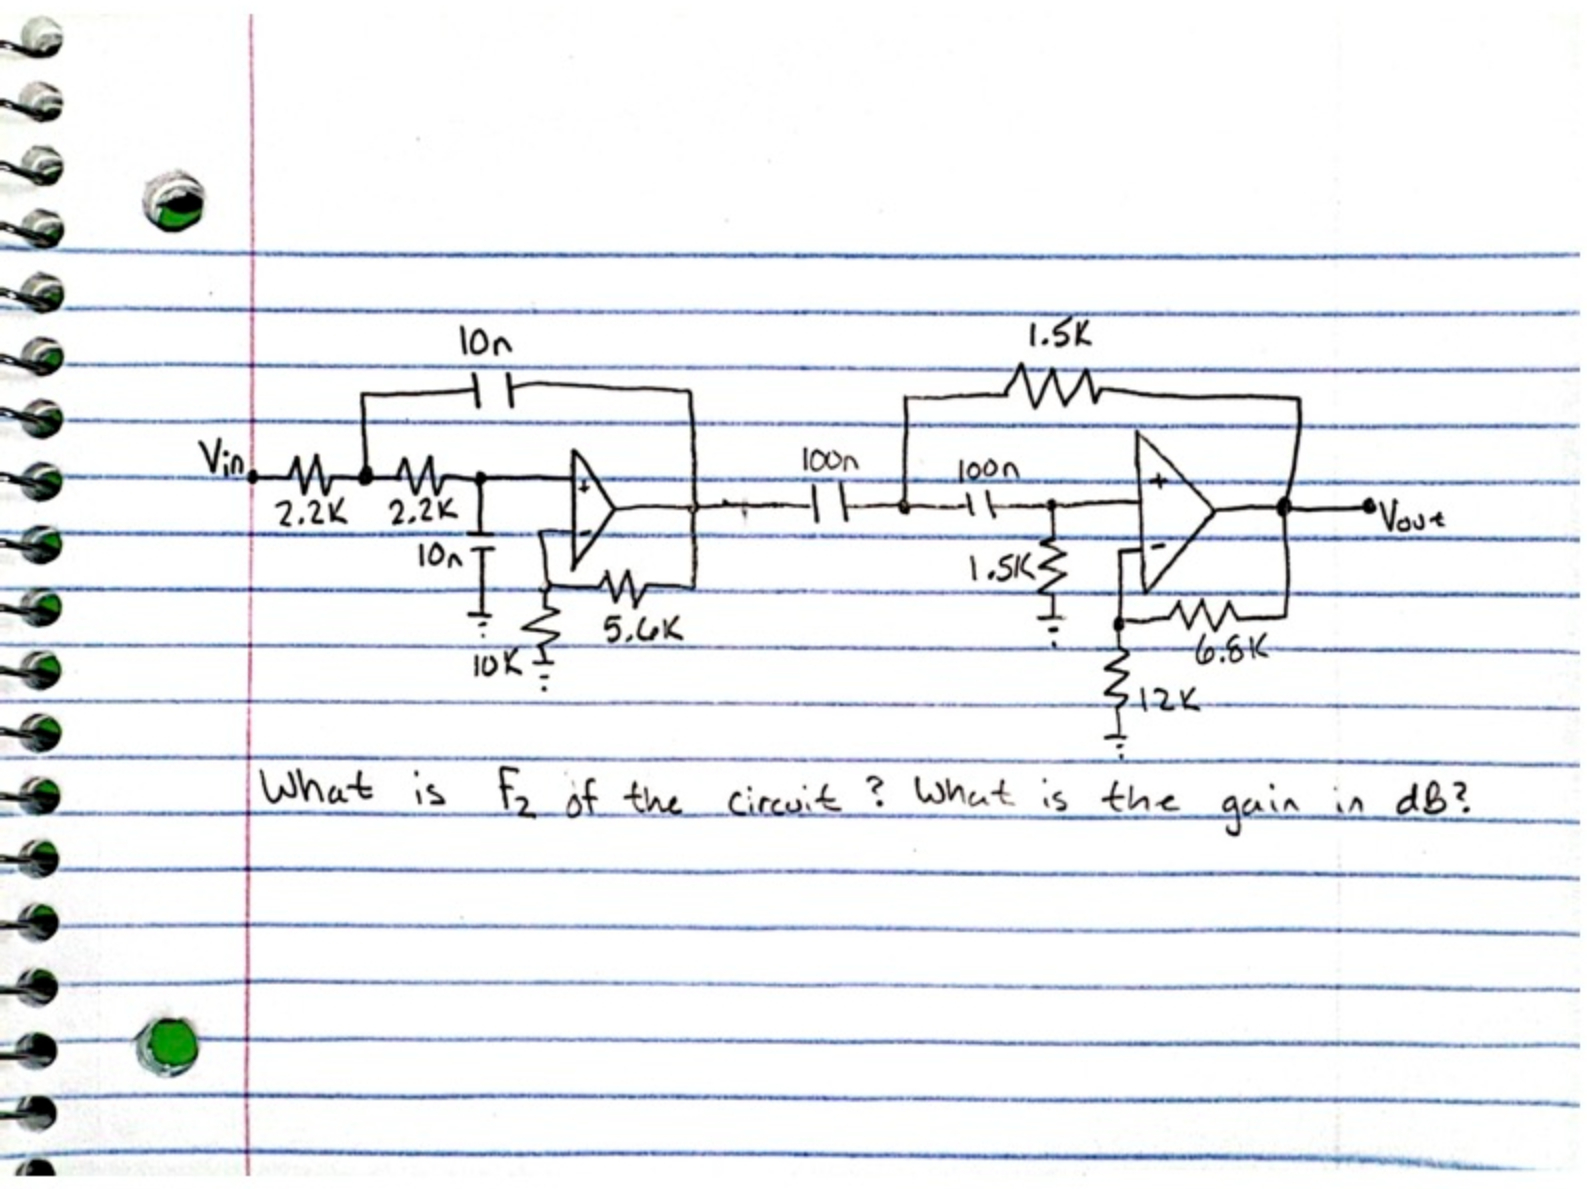 10n
1.5K
Vin
2.2K
2.2K
10n
+
-
5.6K
10K
100n
100n
1.5K
+
-
Vout
6.8K
12K
What is F2 of the circuit? What is the gain in dB?